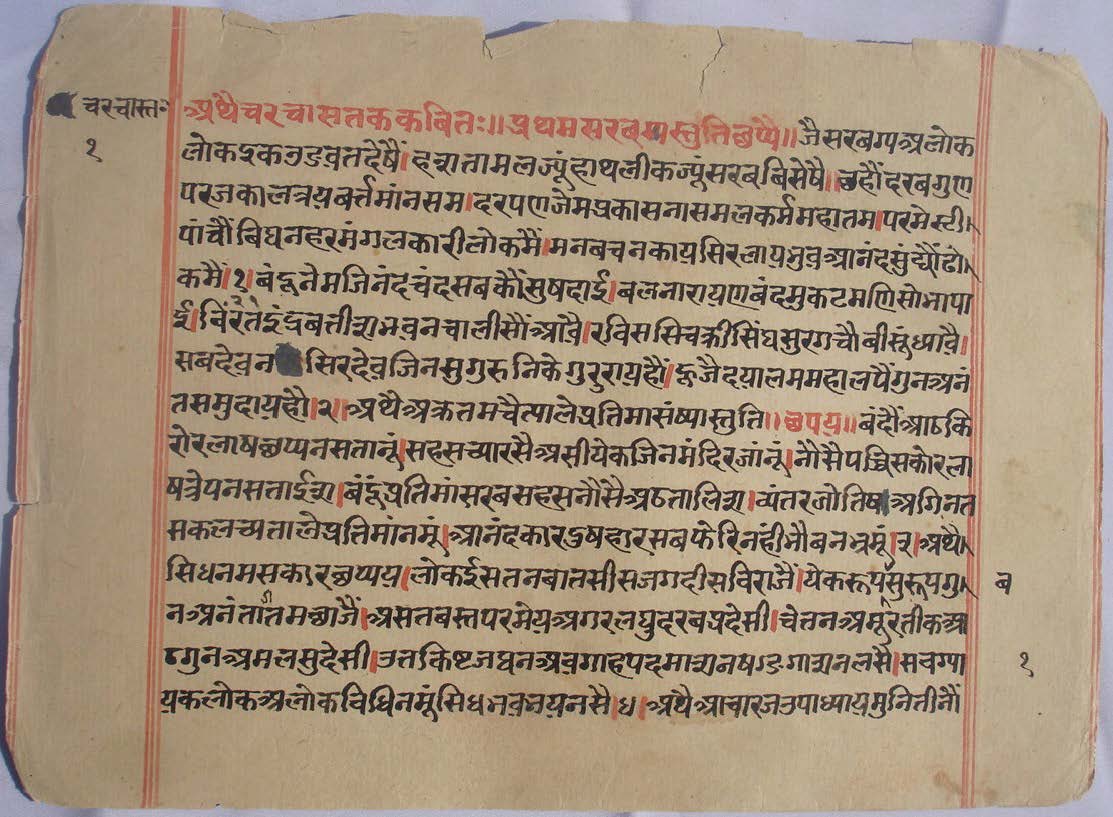 चरचास्त॰
१
अथैचरचासतककबितः॥प्रथमसरबग्यस्तुतिछप्पै॥जैसरबग्यअलोक
लोकइकउडवतदेषैं।हस्तामलज्यूंहाथलीकज्यूंसरबबिसेषै।छहौंदरबगुण
परजकालत्रयबर्त्तमांनसम।दरपणजेमप्रकासनासमलकर्ममहातम।परमेस्टी
पांचौंबिघनहरमंगलकारीलोकमैं।मनबचनकायसिरलायभुवआनंदसुंद्यौंढो
कमैं।१।बंदुनेमजिनंदचंदसबकौंसुषदाई।बलनारायणबंदमुकटमणिसोभापा
ई।बिंतरइंद्रबतीसभवनचालीसौंआंवै।रविससिचक्रीसिंघसुरगचौबीसूंध्यावै।
सबदेवन सिरदेवजिनसुगुरुनिकेगुरुरायहौं।हूजैदयालममहालपैंगुनअनं
तसमुदायहौ।२।अथैअक्रेतमचैत्यालेप्रतिमासंष्यास्तुति॥छपय॥बंदौंआठकि
रोरलाषछप्पनसतानूं।सहसच्यारसैअसीयेकजिनमंदिरजांनूं।नौसैपच्चिसकोरला
षत्रेपनसताईस।बंदूंप्रतिमांसरबसहसनौंसैअठतालिस।व्यंतरजोतिषअगिनत
मकलच्यतालेप्रतिमांनमूं।आनंदकारदुषहारसबफेरिनहींभौबनभ्रमूं।३।अथै
सिधनमसकारछप्पय।लोकईसतनबातसीसजगदीसविराजैं।येकरूपसुरूपगु
ब
नअनंतातमछाजैं।असतबस्तपरमेयअगरलघुदरबप्रदेसी।चेतनअमूरतीकआ
ठगुनअमलसुदेसी।उतकिष्टजघनअवगाहपदमासनषडगासनलसै।सबग्या
१
यकलोकअलोकविधिनमूंसिधभवभयनसै।४।अथैआचारजउपाध्यायमुनितीनौं